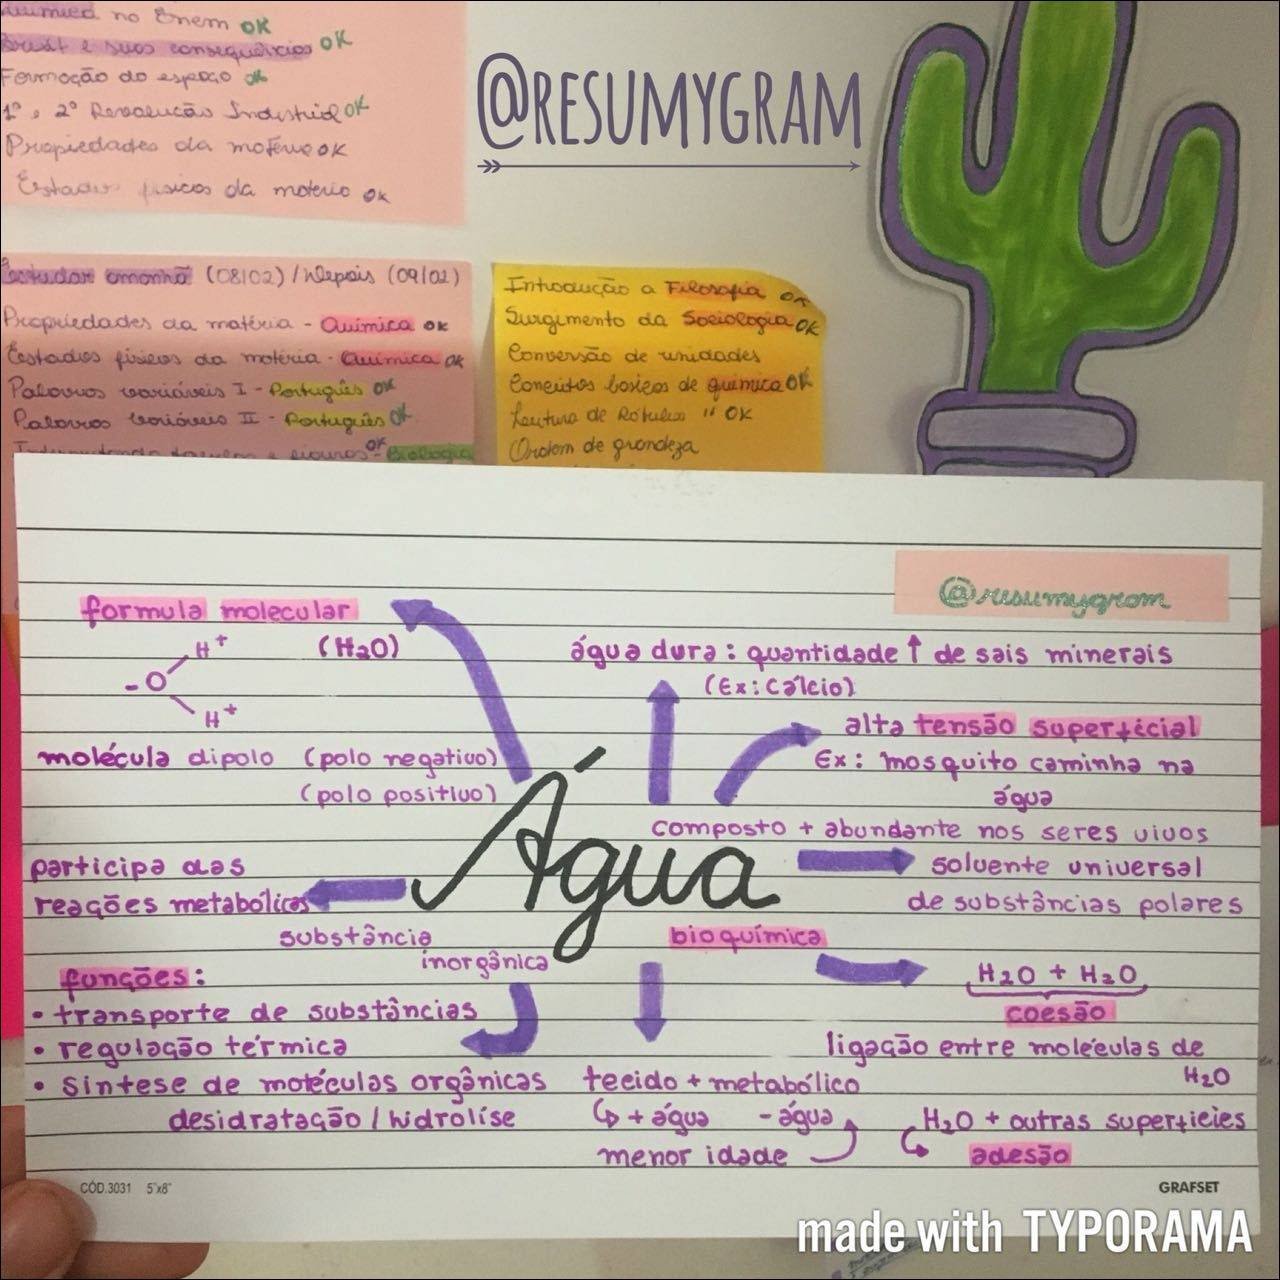 no Enem OK
e suas consequências OK
Formação do espaço ok
1ª e 2ª Revolução Industrial OK
Propriedades da matéria OK
Estados físicos da matéria OK
@RESUMYGRAM
Estudar amanhã (08/02) / Depois (09/02)
Propriedades da matéria - Química OK
Estados físicos da matéria - Química OK
Palavras variáveis I - Português OK
Palavras variáveis II - Português OK
OK - Biologia
Introdução a Filosofia OK
Surgimento da Sociologia OK
Conversão de unidades
Conceitos basicos de química OK
Leitura de Rótulos " OK
Ordem de grandeza
@resumygram
formula molecular
(H2O)
H+
-O
H+
molécula dipolo (polo negativo)
(polo positivo)
água dura: quantidade ↑ de sais minerais
(Ex: Cálcio)
alta tensão superficial
Ex: mosquito caminha na
água
Água
composto + abundante nos seres vivos
solvente universal
de substâncias polares
participa das
reações metabólicas
substância
inorgânica
funções:
• transporte de substâncias
• regulação térmica
• sintese de moléculas orgânicas
desidratação / hidrolise
bioquímica
tecido + metabólico
+ água - água
menor idade
H2O + H2O
coesão
ligação entre moléculas de
H2O
H2O + outras superficies
adesão
CÓD.3031 5"x8"
GRAFSET
made with TYPORAMA